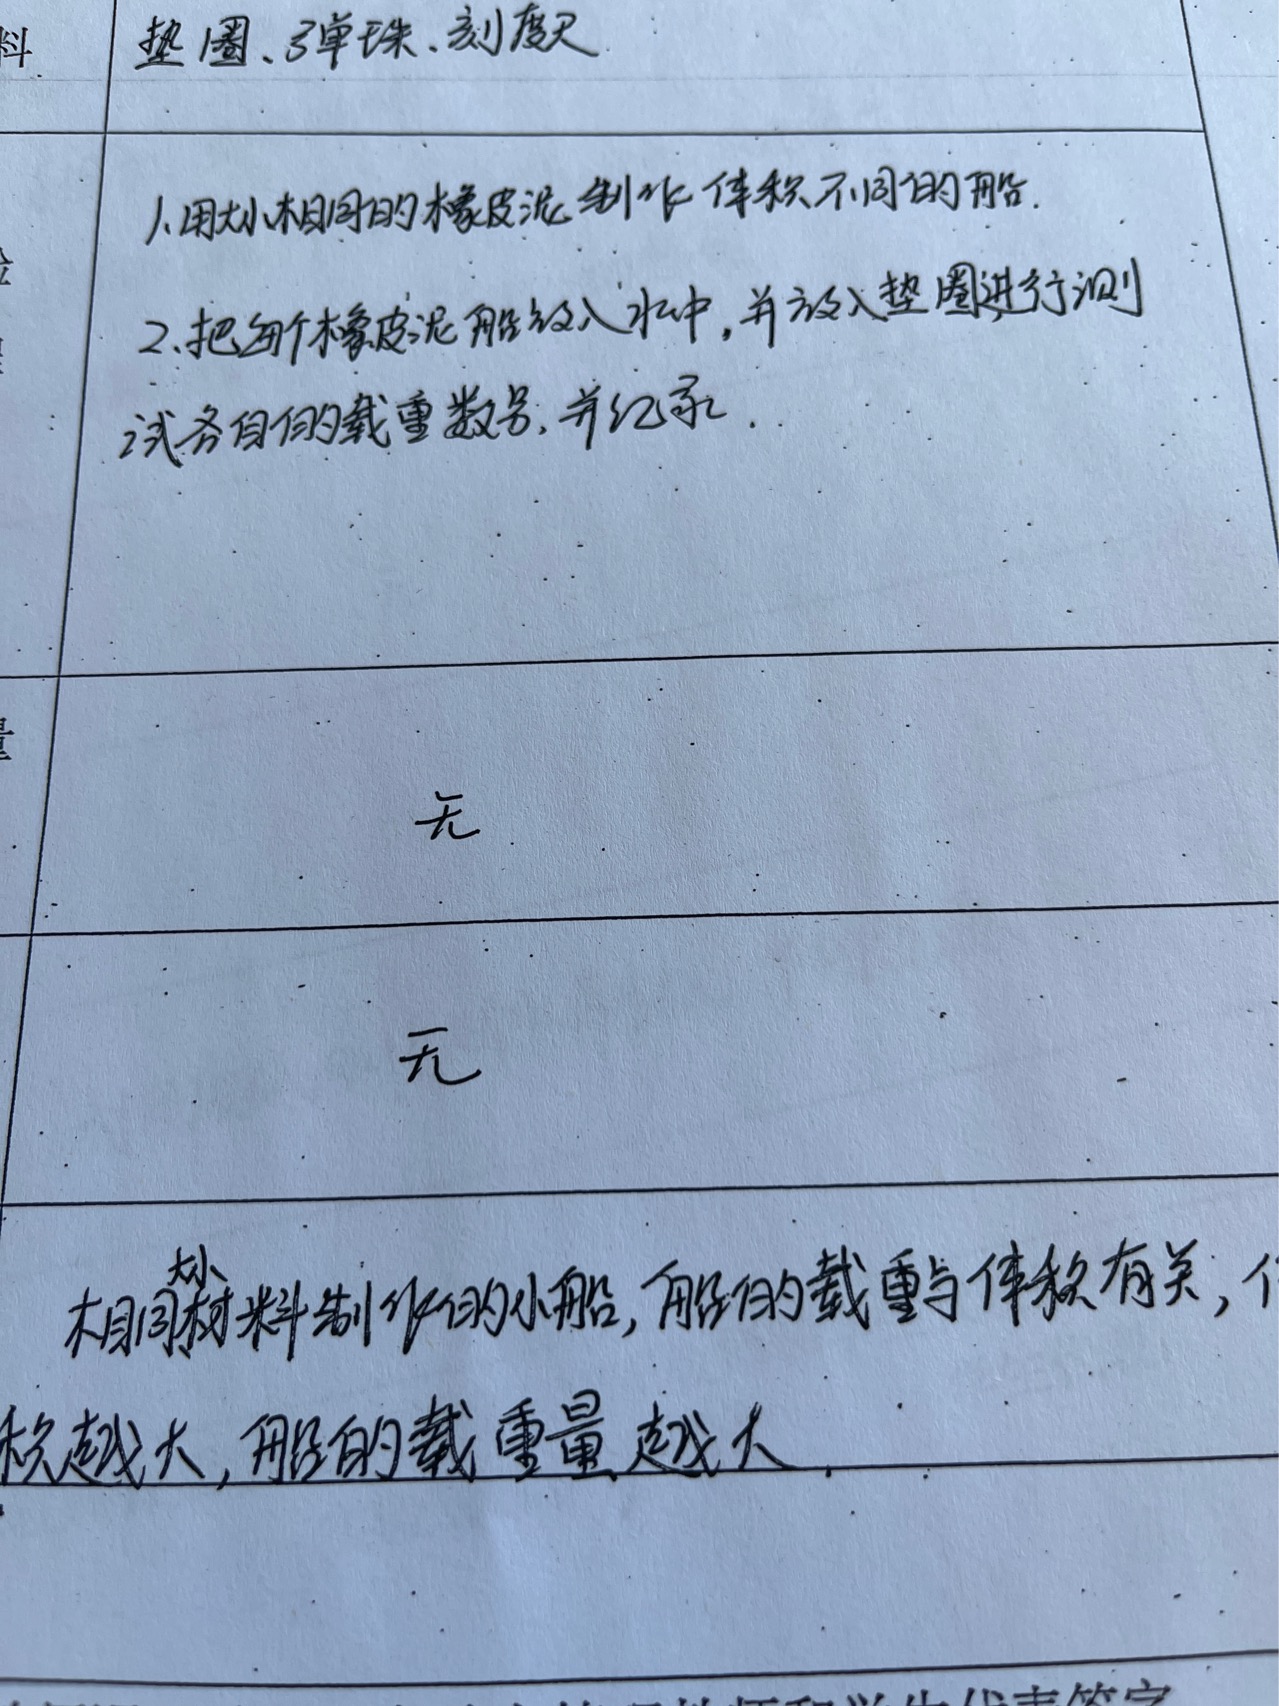 料 垫圈、弹珠、刻度尺
1、用大小相同的橡皮泥制作体积不同的船.
2、把每个橡皮泥船放入水中,并放入垫圈进行测
试各自的载重数量,并纪录.
量
无
无
大小
相同材料制作的小船,船的载重与体积有关,
积越大,船的载重量越大.
教师和学生代表签字